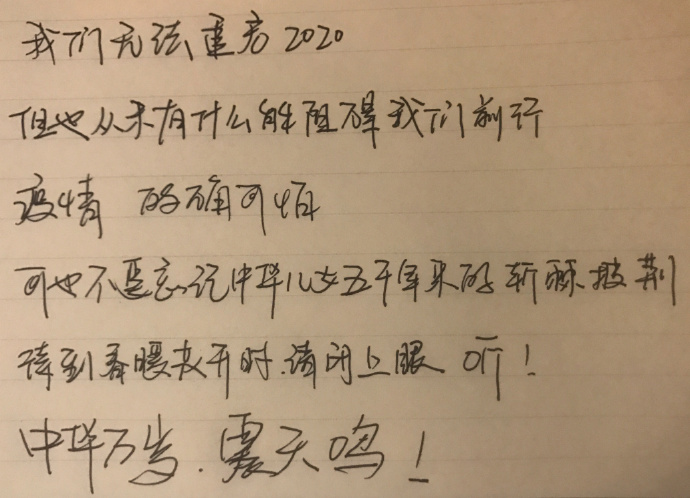 我们无法重启2020
但也从未有什么能阻碍我们前行
疫情 的确可怕
可也不要忘记中华儿女五千年来的斩 披荆
待到春暖花开时.请闭上眼 听!
中华万岁.震天鸣!